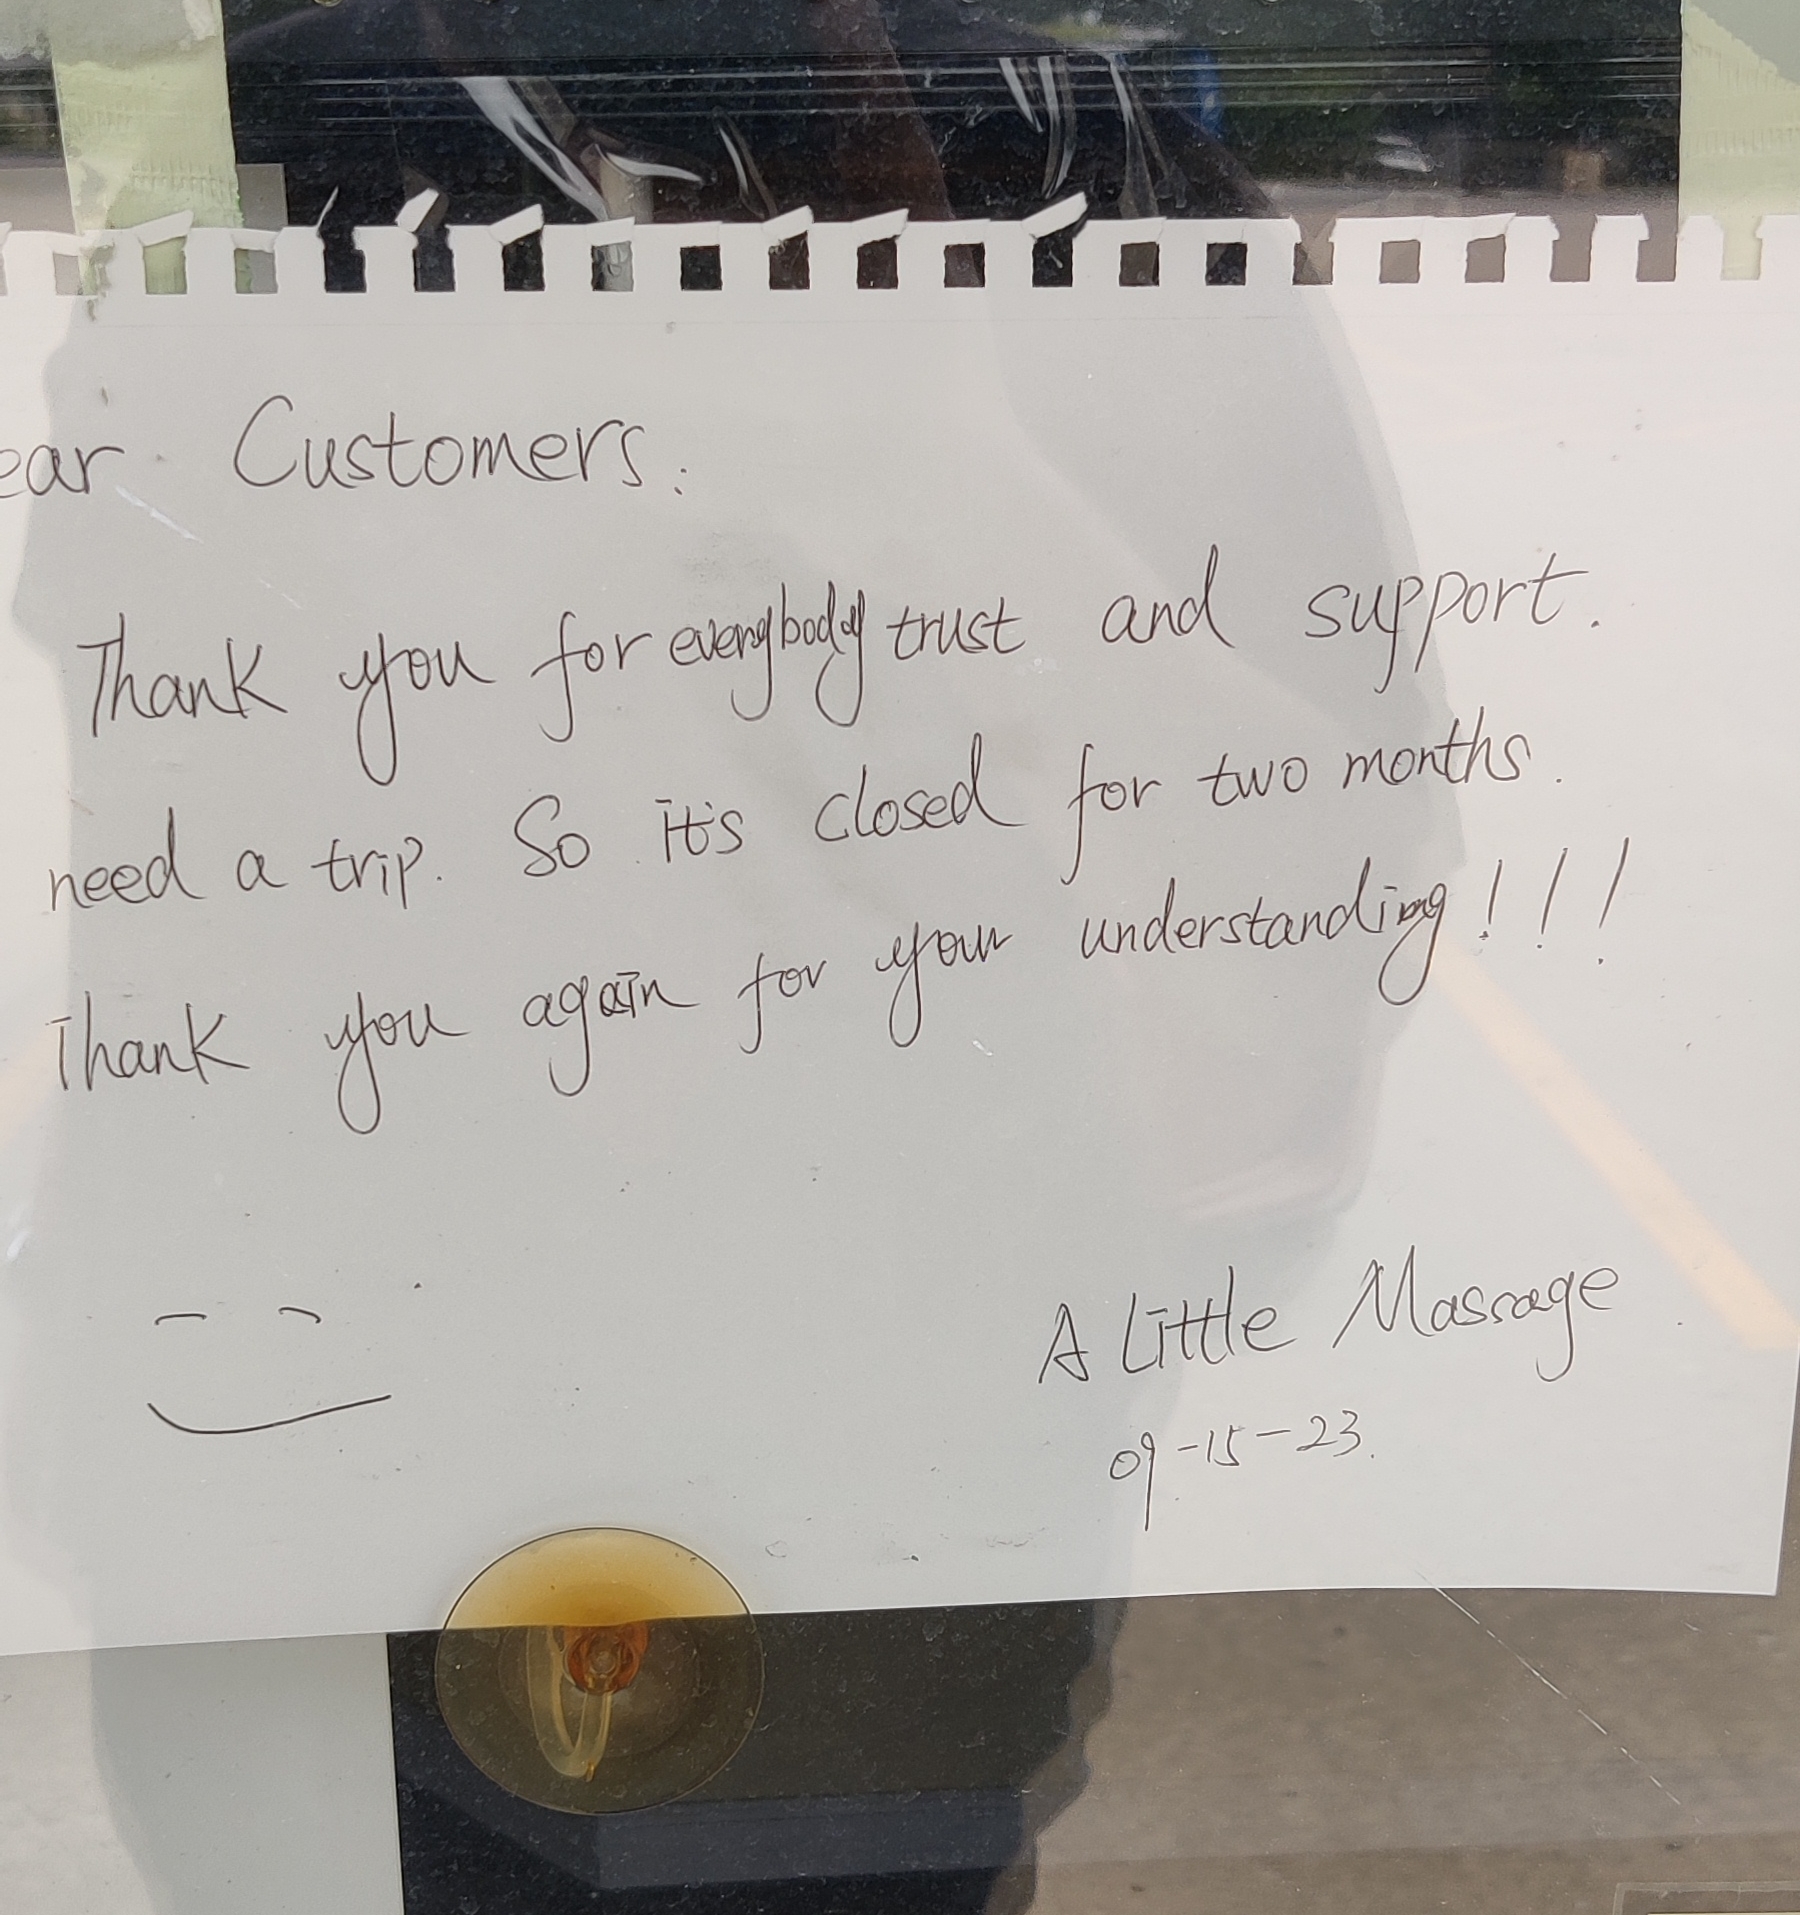 ear Customers:
Thank you for everybody trust and support.
need a trip. So it's closed for two months.
Thank you again for your understanding!!!
A Little Massage
09-15-23.